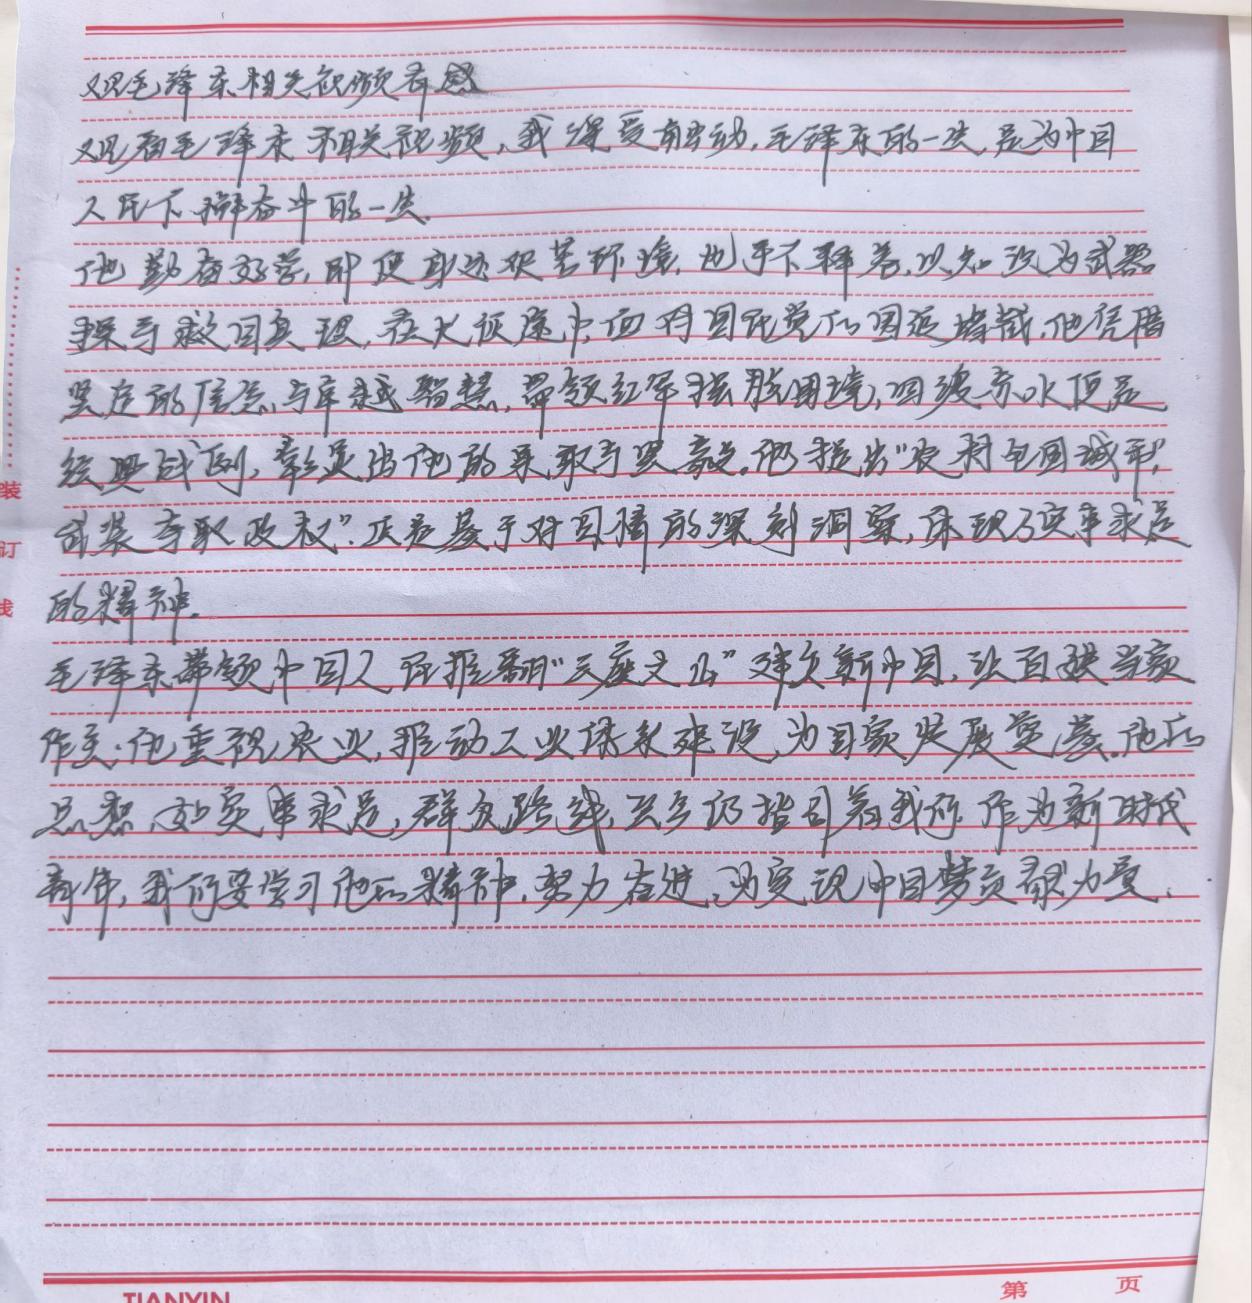 观毛泽东相关视频有感
观看毛泽东相关视频,我深受触动,毛泽东的一生,是为中国
人民不懈奋斗的一生.
他勤奋好学,即便身处艰苦环境,也手不释卷,以知识为武器
探寻救国真理,在长征途中,面对国民党的围追堵截,他凭借
坚定的信念与卓越智慧,带领红军摆脱困境,四渡赤水便是
经典战例,彰显出他的果敢与坚毅。他提出“农村包围城市,
武装夺取政权”.正是基于对国情的深刻洞察,体现了实事求是
的精神.
毛泽东带领中国人民推翻“三座大山”建立新中国,让百姓当家
作主.他重视农业,推动工业体系建设,为国家发展奠基。他的
思想,如实事求是,群众路线,至今仍指引着我们.作为新时代
青年,我们要学习他的精神,努力奋进,为实现中国梦贡献力量.
装
订
线
TIANYIN
第 页